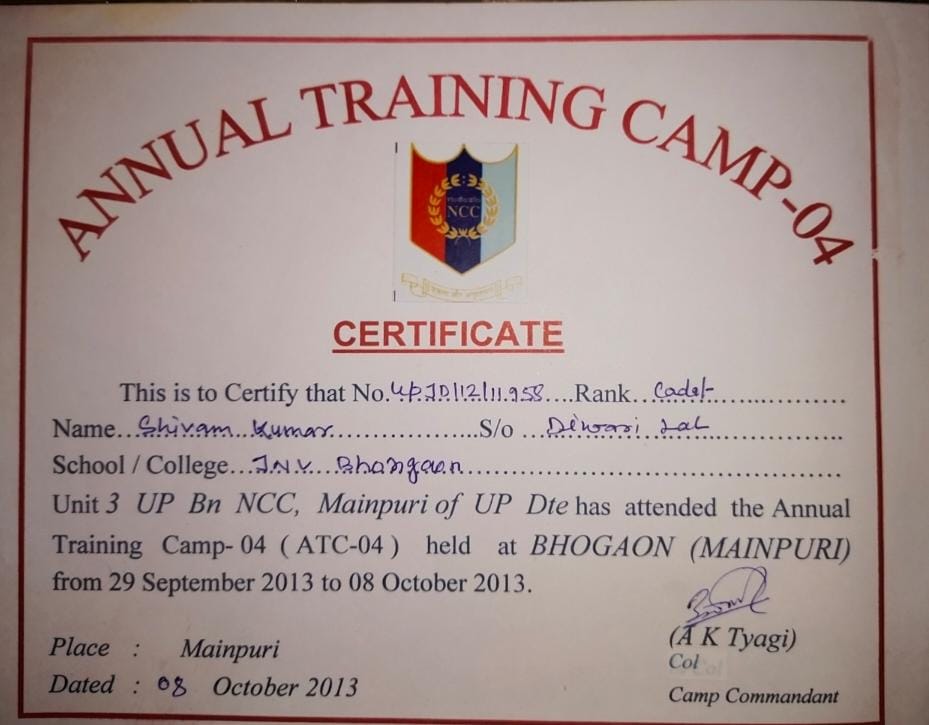 ANNUAL TRAINING CAMP-04
NCC
CERTIFICATE
This is to Certify that No.UPJD/12/11958....Rank..Cadet...............
Name...Shivam Kumar.....................S/o ...Diwari Lal.....................
School / College...J.N.V. Bhongaon..........................................................
Unit 3 UP Bn NCC, Mainpuri of UP Dte has attended the Annual
Training Camp- 04 ( ATC-04 ) held at BHOGAON (MAINPURI)
from 29 September 2013 to 08 October 2013.
(A K Tyagi)
Place : Mainpuri
Col
Dated : 08 October 2013
Camp Commandant